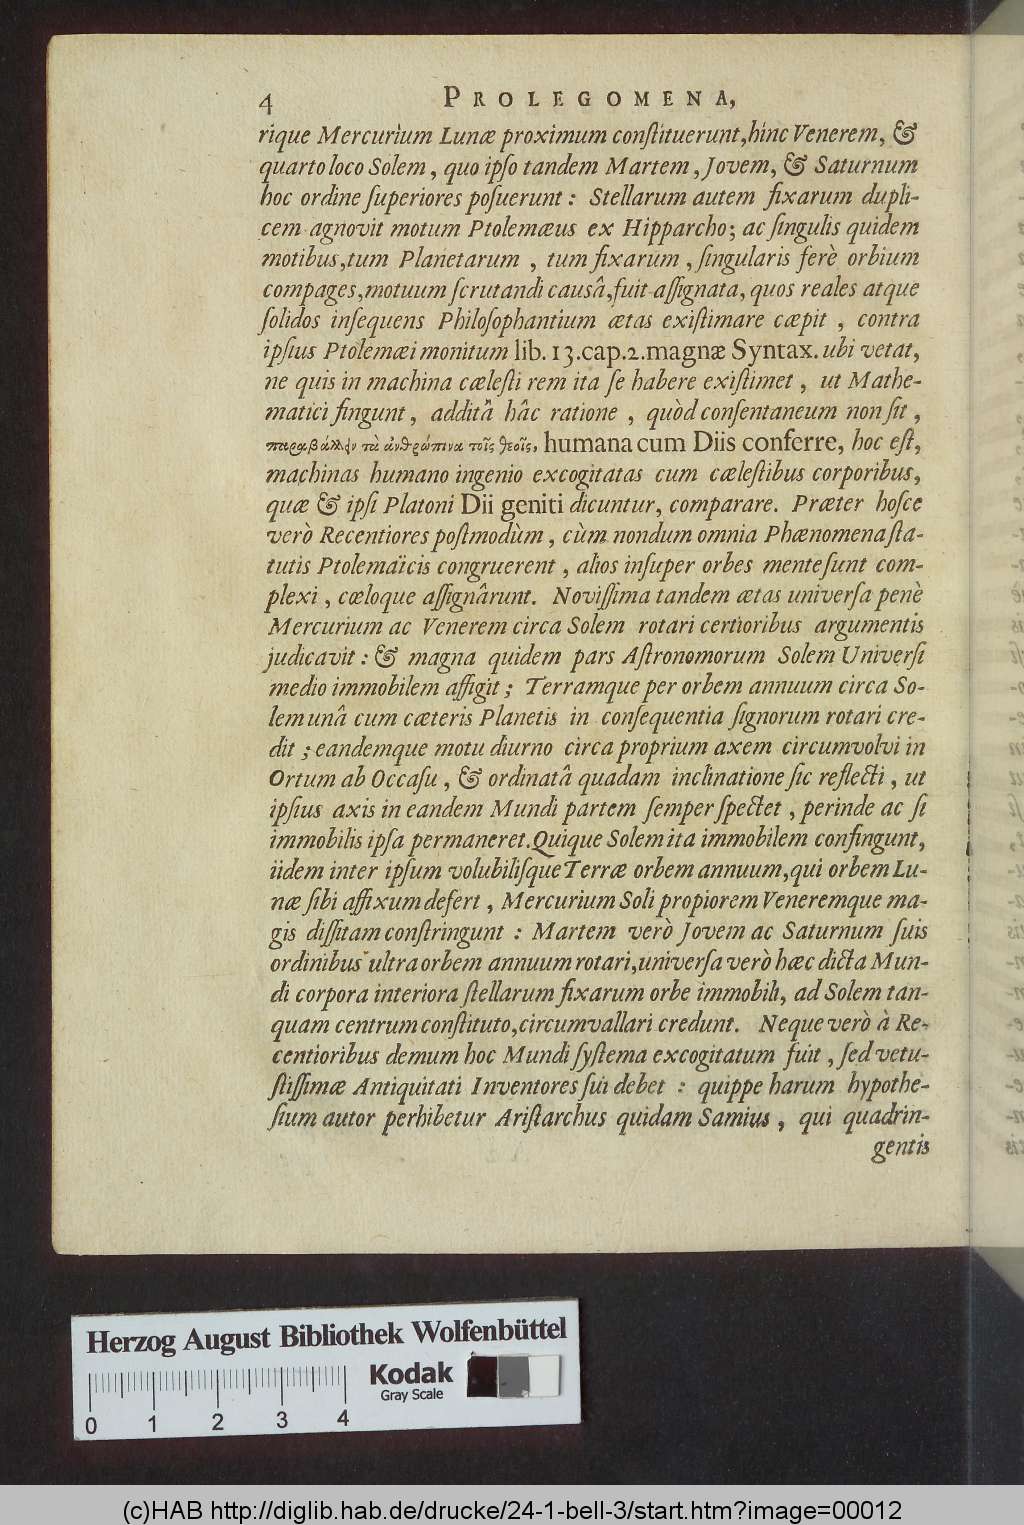 4 PROLEGOMENA,
rique Mercurium Lunæ proximum conſtituerunt, hinc Venerem, &
quarto loco Solem, quo ipſo tandem Martem, Jovem, & Saturnum
hoc ordine ſuperiores poſuerunt: Stellarum autem fixarum dupli-
cem agnovit motum Ptolemæus ex Hipparcho; ac ſingulis quidem
motibus, tum Planetarum, tum fixarum, ſingularis ferè orbium
compages, motuum ſcrutandi causâ, fuit aſſignata, quos reales atque
ſolidos inſequens Philoſophantium ætas exiſtimare cæpit, contra
ipſius Ptolemæi monitum lib. 13. cap. 2. magnæ Syntax. ubi vetat,
ne quis in machina cæleſti rem ita ſe habere exiſtimet, ut Mathe-
matici fingunt, additâ hâc ratione, quòd conſentaneum non ſit,
παραβάλλην τὰ ἀνθρώπινα τοῖς θεοῖς, humana cum Diis conferre, hoc eſt,
machinas humano ingenio excogitatas cum cæleſtibus corporibus,
quæ & ipſi Platoni Dii geniti dicuntur, comparare. Præter hoſce
verò Recentiores poſtmodùm, cùm nondum omnia Phænomena ſta-
tutis Ptolemaïcis congruerent, alios inſuper orbes mente ſunt com-
plexi, cæloque aſſignârunt. Noviſſima tandem ætas univerſa penè
Mercurium ac Venerem circa Solem rotari certioribus argumentis
judicavit: & magna quidem pars Aſtronomorum Solem Univerſi
medio immobilem affigit; Terramque per orbem annuum circa So-
lem unâ cum cæteris Planetis in conſequentia ſignorum rotari cre-
dit; eandemque motu diurno circa proprium axem circumvolvi in
Ortum ab Occaſu, & ordinatâ quadam inclinatione ſic reflecti, ut
ipſius axis in eandem Mundi partem ſemper ſpectet, perinde ac ſi
immobilis ipſa permaneret. Quique Solem ita immobilem confingunt,
iidem inter ipſum volubiliſque Terræ orbem annuum, qui orbem Lu-
næ ſibi affixum defert, Mercurium Soli propiorem Veneremque ma-
gis diſſitam conſtringunt: Martem verò Jovem ac Saturnum ſuis
ordinibus ultra orbem annuum rotari, univerſa verò hæc dicta Mun-
di corpora interiora ſtellarum fixarum orbe immobili, ad Solem tan-
quam centrum conſtituto, circumvallari credunt. Neque verò à Re-
centioribus demum hoc Mundi ſyſtema excogitatum fuit, ſed vetu-
ſtiſſimæ Antiquitati Inventores ſui debet: quippe harum hypothe-
ſium autor perhibetur Ariſtarchus quidam Samius, qui quadrin-
gentis
Herzog August Bibliothek Wolfenbüttel
Kodak
Gray Scale
0 1 2 3 4
(c)HAB http://diglib.hab.de/drucke/24-1-bell-3/start.htm?image=00012